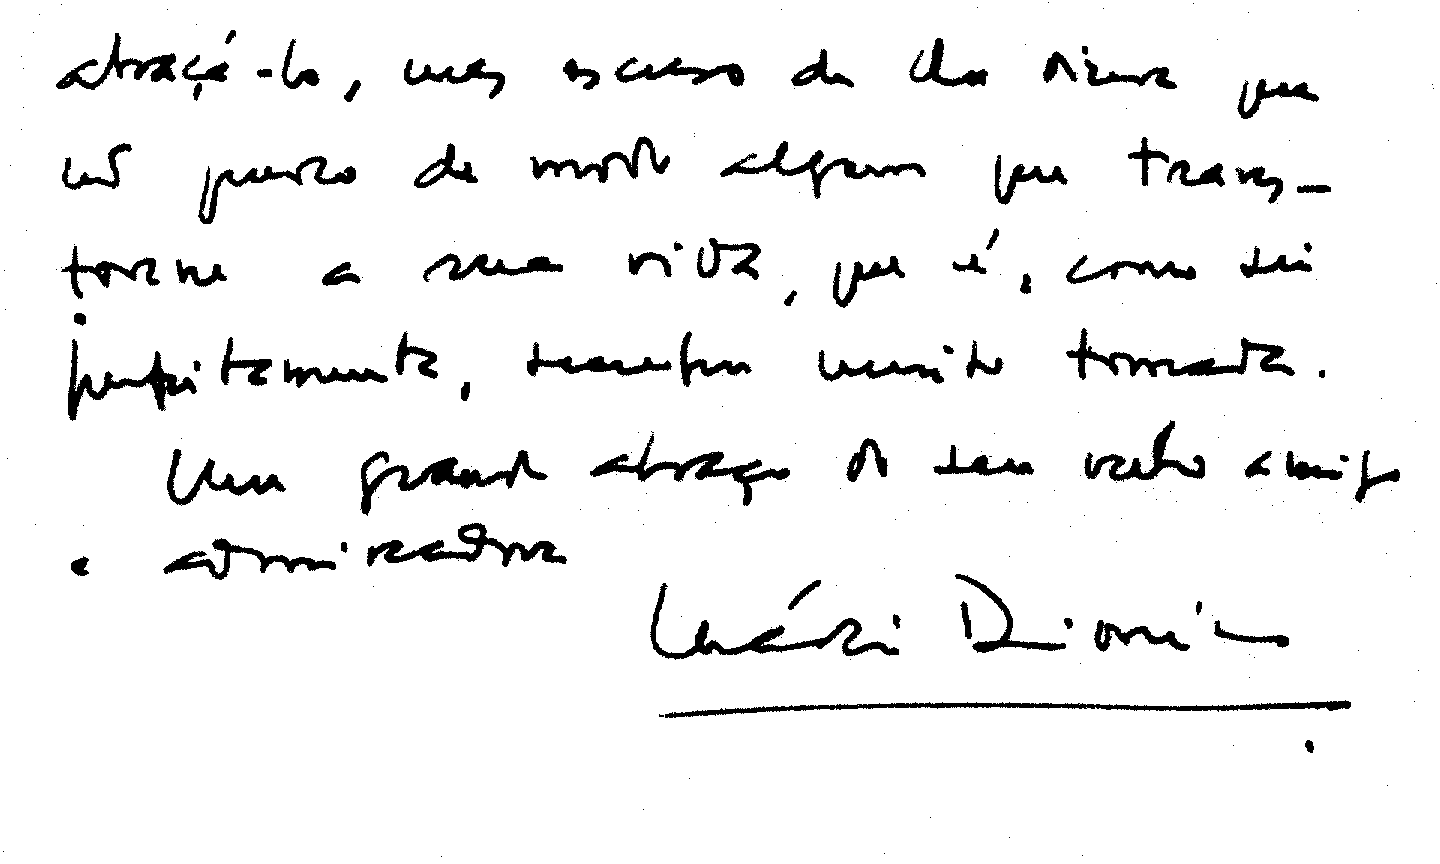 abraçá-lo, mas escuso de lhe dizer que
não quero de modo algum que trans-
torne a sua vida, que é, como sei
perfeitamente, também muito tomada.
Um grande abraço do seu velho amigo
e admirador
Mário Dionísio